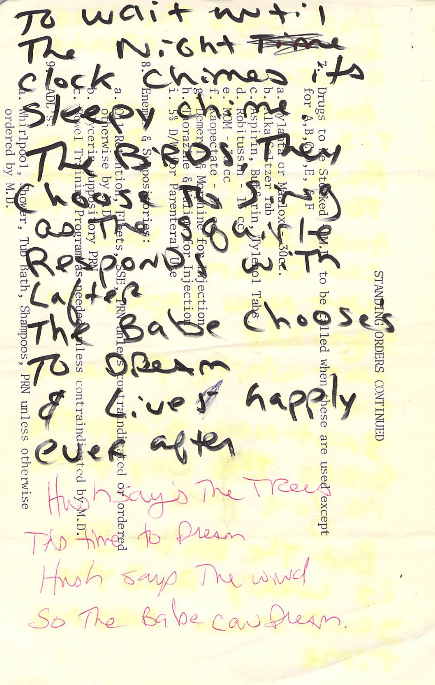 To wait until
The Night Time
clock chimes its
sleepy chime
The BiRDS They
choose To sing
as The squirrels
Respond with
Lafter
The Babe chooses
To Dream
& Lives happly
ever after
Hush say's The Trees
Tis time to Dream
Hush says The wind
So The Babe can Dream.
STANDING ORDERS CONTINUED
Drugs to be Stocked to be filled when these are used except
for A,B,C,E, & F
Mylanta or Maalox 30cc
Alka Seltzer Tab
c. Aspirin, Bufferin, Tylenol Tabs
d. Robitussin cc
e. MOM cc
f. Kaopectate -
g. Demerol & Morphine for Injection
h. Thorazine for Injection
i. 5% D/W for Parenteral Use
8. Enemas & Suppositories:
a. Retention, Fleets, SSE, PRN unless contraindicated or ordered
otherwise by M.D.
b. Glycerin Suppository PRN
c. Bowel Training Program as needed unless contraindicated by M.D.
9. ADL's:
a. Whirlpool, Shower, Tub Bath, Shampoos, PRN unless otherwise
ordered by M.D.